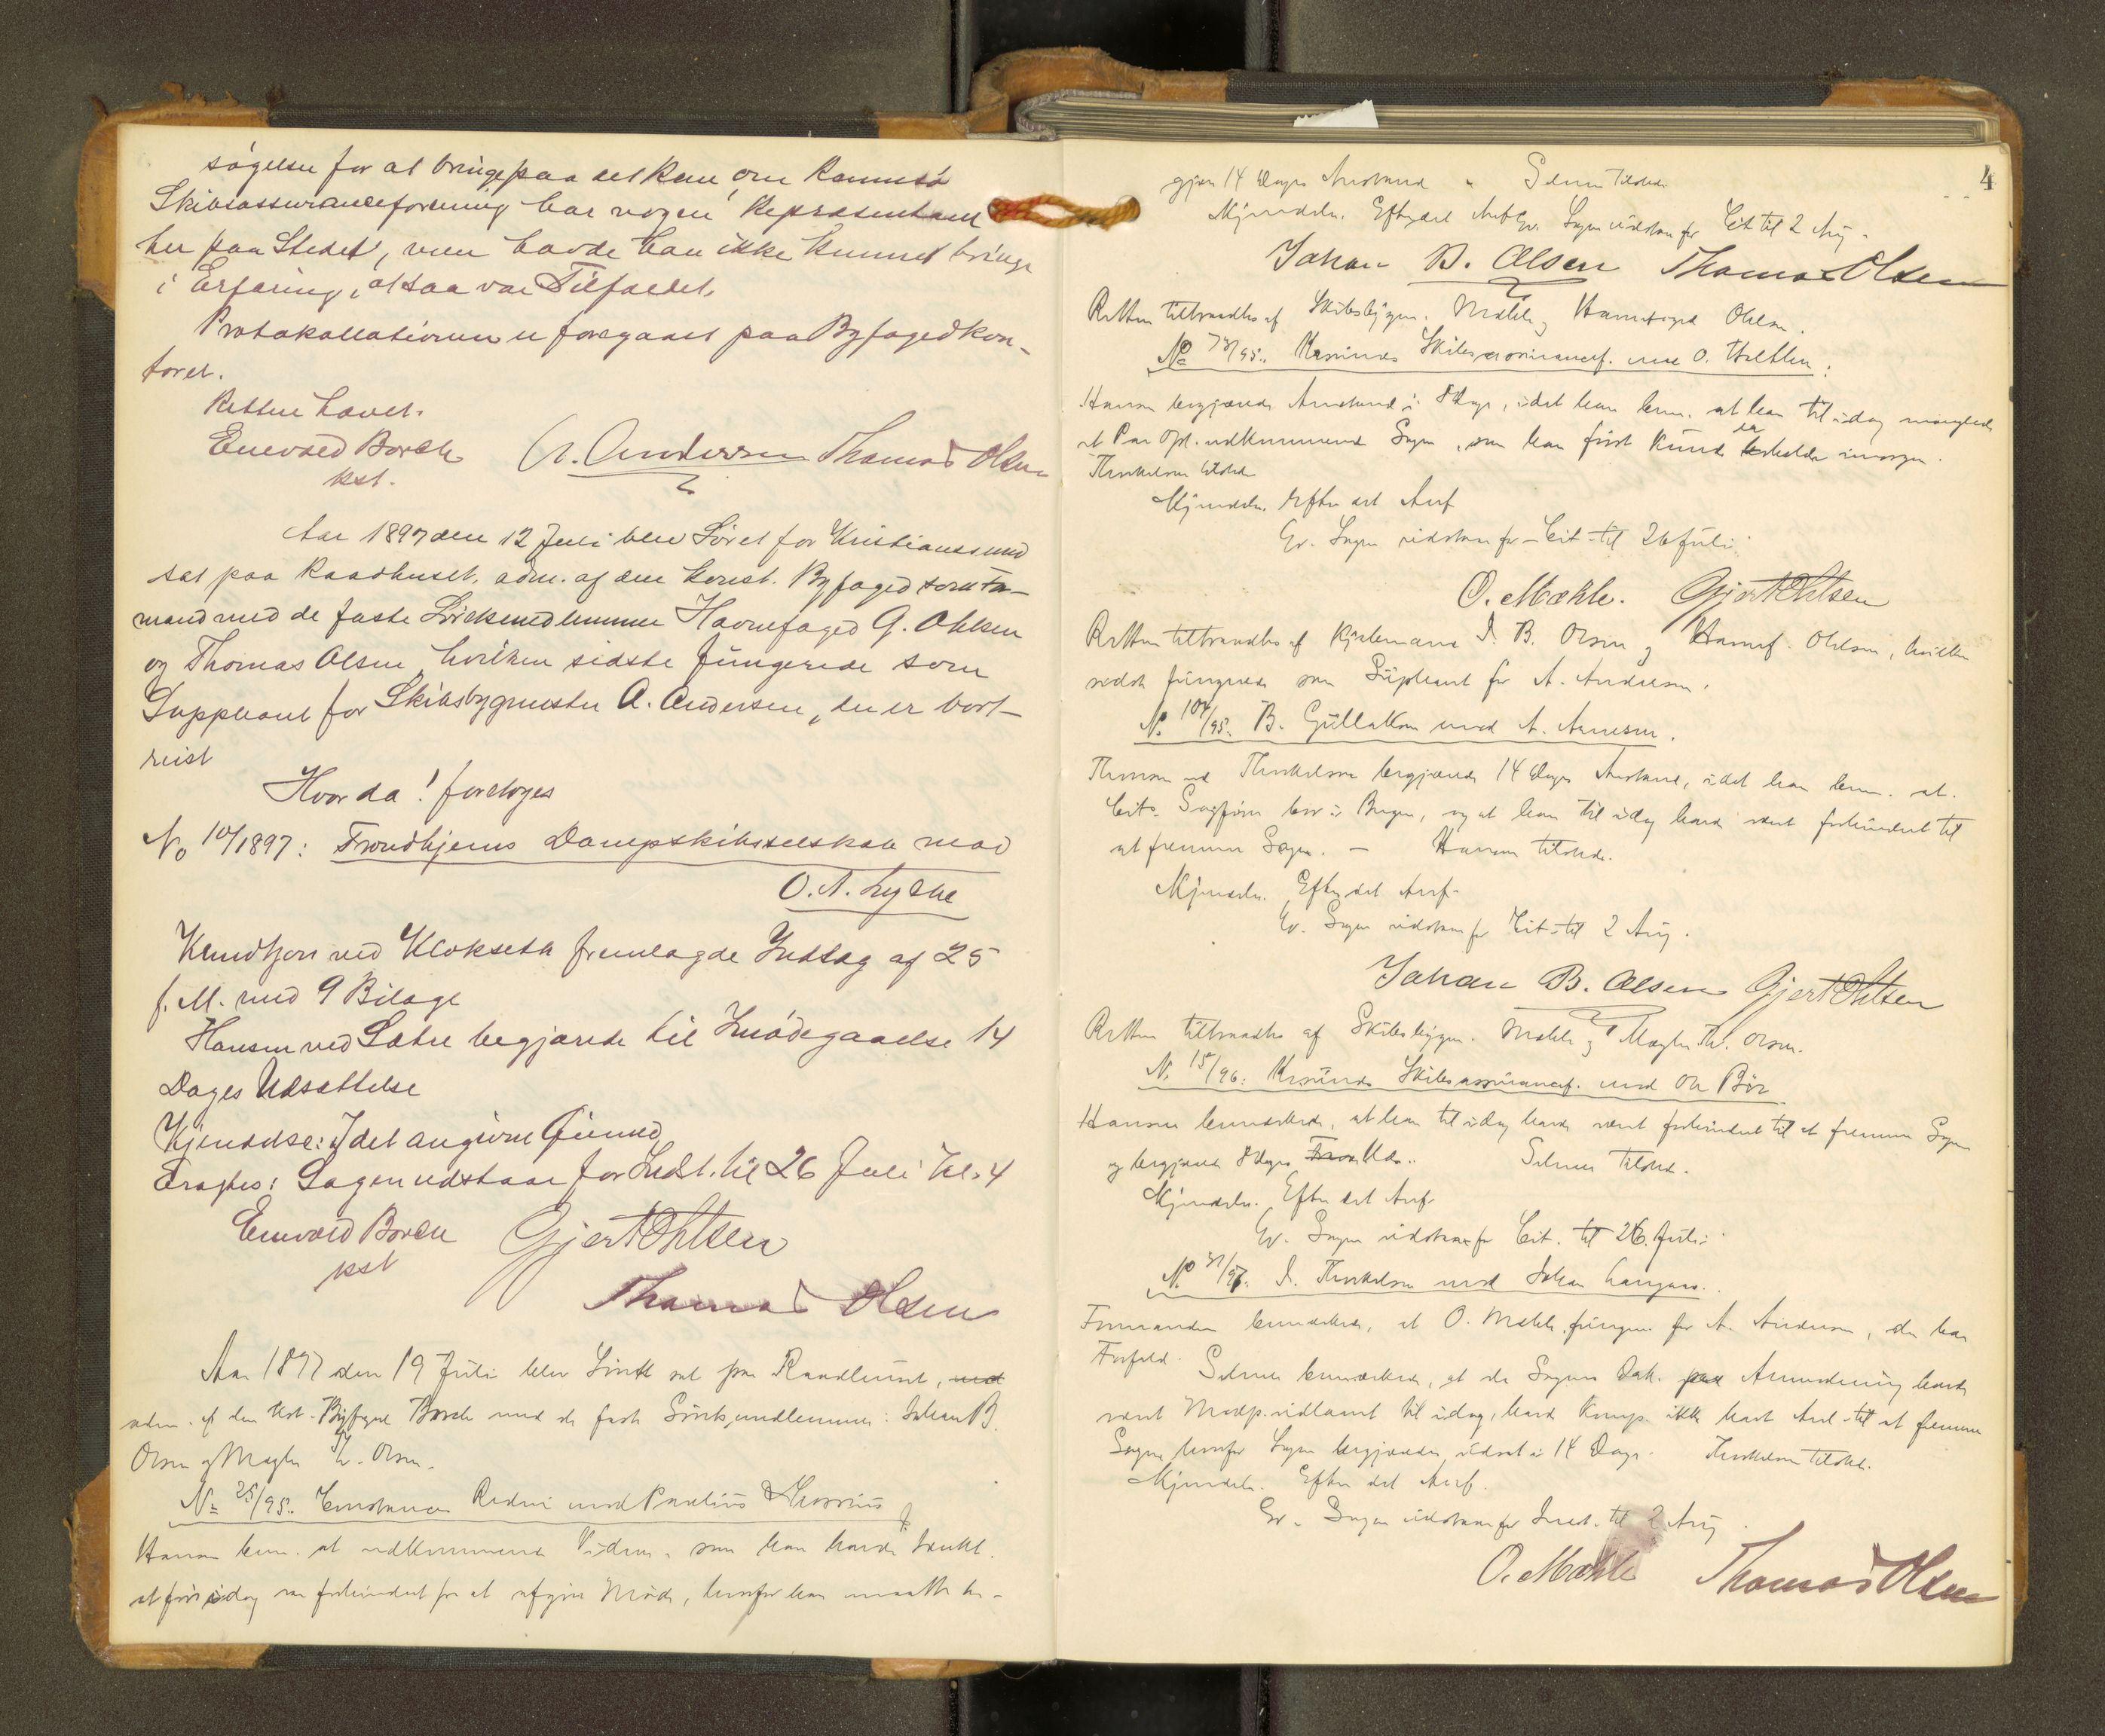 søgelse for at bringe paa det Rene, om Ramsø
Skibsassuranceforening har nogen Repræsentant
her paa Stedet, men havde han ikke kunnet bringe
i Erfaring, at saa var Tilfældet.
Protokollationen er foregaaet paa Byfogedkon-
toret.
Retten hævet.
Enevold Borch A. Andersen Thomas Olsen
kst.
Aar 1897 den 12 Juli blev Søret for Kristianssund
sat paa Raadhuset, adm. af den konst. Byfoged som For-
mand med de faste Søretsmedlemmer Havnefoged G. Ohlsen
og Thomas Olsen, hvilken sidste fungerede som
Suppleant for Skibsbygmester A. Andersen, der er bort-
reist
Hvorda! foretoges
No 10/1897: Trondhjems Dampskibsselskab mod
O. A. Lyche
Knudtzon ved Klokseth fremlagde Indlæg af 25
f. M. med 9 Bilage
Hansen ved Sæther begjærede til Imødegaaelse 14
Dages Udsættelse
Kjendelse: I det angivne Øiemed
Eragtes: Sagen udstaar for Indst. til 26 Juli Kl. 4
Enevold Borch Gjert Ohlsen
kst
Thomas Olsen
Aar 1897 den 19 Juli blev Søret sat paa Raadhuset, med
adm. af den kst. Byfoged Borch med de faste Søretsmedlemmer: Johan B.
Olsen og Mægler Th. Olsen.
No 25/95. Constance Rederi mod Paulus
Hansen bem. at vedkommende Vidne, som han havde tænkt
at føre idag var forhindret fra at afgive Møde, hvorfor han maatte be-
4
gjære 14 Dages Anstand. Selmer tilstede
Kjendelse. Efter det Anf. Er. Sagen udstaar for Cit til 2 Aug.
Johan B. Olsen Thomas Olsen
Retten tiltraadtes af Skibsbygm. Mæhle og Havnefoged Ohlsen.
No 73/95. Krsunds Skibsassurancef. mod O. Walthen:
Hansen begjærede Anstand i 8 Dage, idet han bem. at han til idag manglede
et Par Opl. vedkommende Sagen, som han først kunde erholde imorgen.
Thorkelsen tilstede
Kjendelse. Efter det Anf
Er. Sagen udstaar for Cit. til 26 Juli.
O. Mæhle. Gjert Ohlsen
Retten tiltraadtes af Kjøbmand J. B. Olsen og Havnef. Ohlsen, hvilken
sidste fungerede som Supleant for A. Andersen.
No 104/95. B. Gullaksen mod A. Arnesen.
ved Thorkelsen begjærede 14 Dages Anstand, idet han bem. at
Cits. Sagfører bor i Bergen, og at han til idag havde været forhindret til
at fremme Sagen. – Hansen tilstede.
Kjendelse. Efter det Anf.
Er. Sagen udstaar for Cit. til 2 Aug.
Johan B. Olsen Gjert Ohlsen
Retten tiltraadtes af Skibsbygm. Mæhle og Mægler Th. Olsen.
No 15/96: Krsunds Skibsassurancef. mod Ole Bør
Hansen bemærkede, at han til idag havde været forhindret til at fremme Sagen
og begjærede 8 Dages Uds. Selmer tilstede.
Kjendelse. Efter det Anf.
Er. Sagen udstaar for Cit. til 26. Juli.
No 31/97. J. Thorkelsen mod Johan Langaas.
Formanden bemærkede, at O. Mæhle fungerer for A. Andersen, der har
Forfald.
Selmer bemærkede, at da Sagens Dok. paa Anmodning havde
været Modp. udlaant til idag, havde Komp. ikke havt Anl. til at fremme
Sagen, hvorfor Sagen begjæredes udsat i 14 Dage. Thorkelsen tilstede.
Kjendelse. Efter det Anf.
Er. Sagen udstaar for Indst. til 2 Aug.
O. Mæhle Thomas Olsen